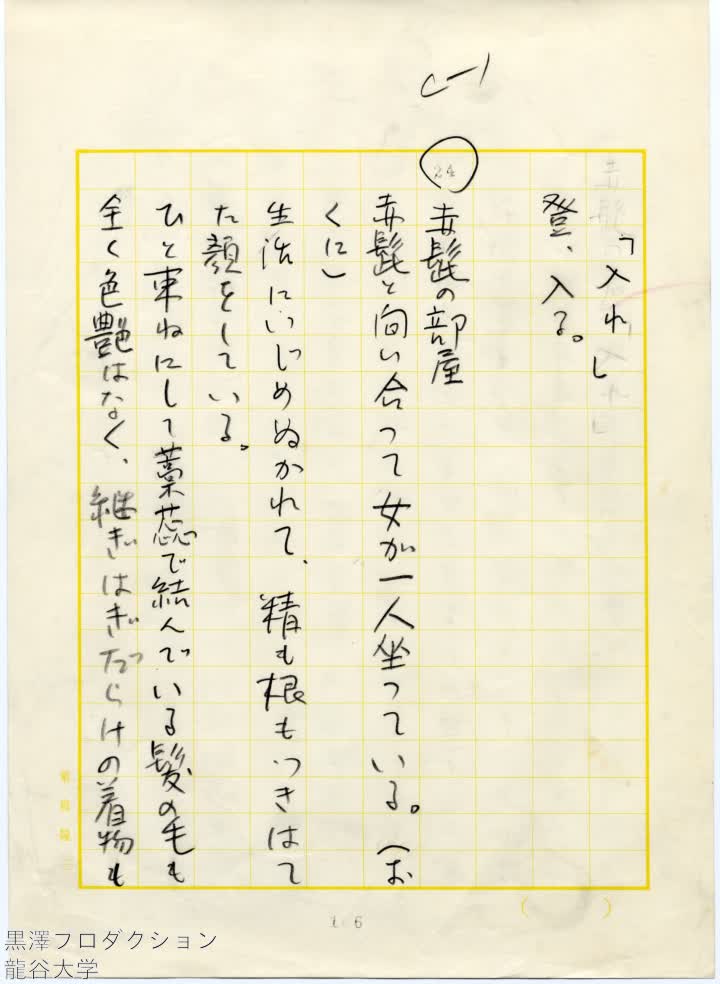 「入れ」
登、入る。
24
赤髭の部屋
赤髭と向い合って女が一人坐っている。（お
くに）
生活にいじめぬかれて、精も根もつきはて
た顔をしている。
ひと束ねにして藁蕊で結んでいる髪の毛も
全く色艶はなく、継ぎはぎだらけの着物も
黒澤プロダクション
龍谷大学